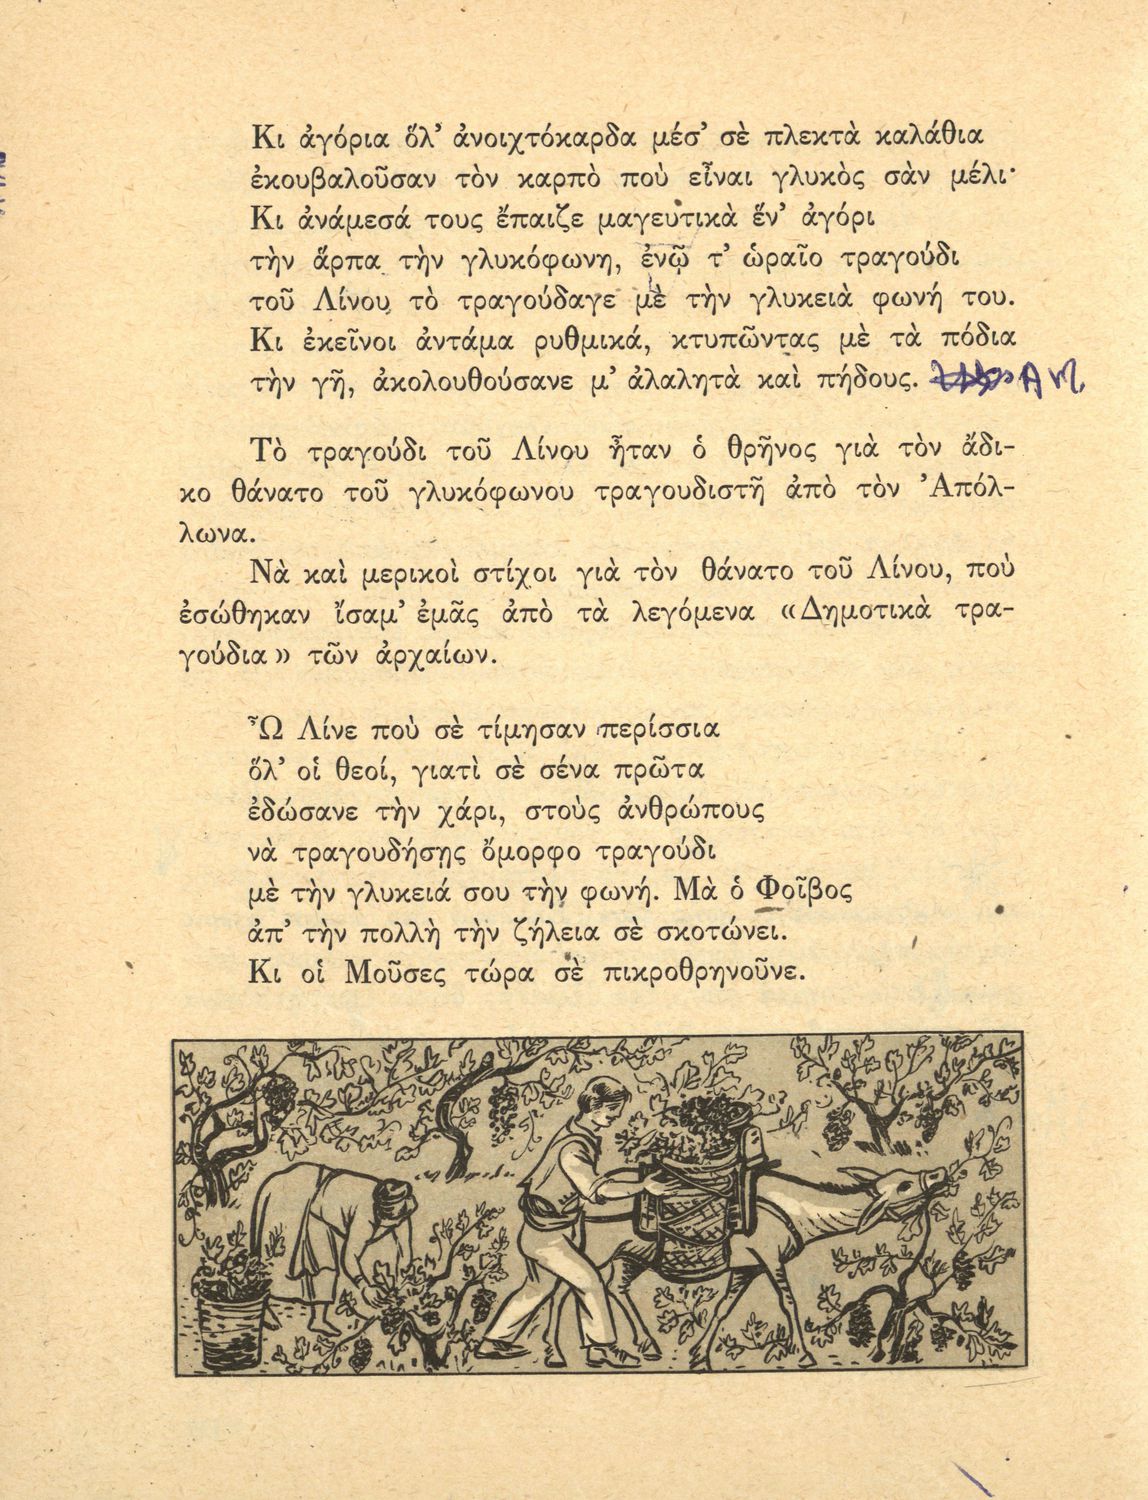 Κι ἀγόρια ὅλ’ ἀνοιχτόκαρδα μέσ’ σὲ πλεκτὰ καλάθια
ἐκουβαλοῦσαν τὸν καρπὸ ποὺ εἶναι γλυκὸς σὰν μέλι·
Κι ἀνάμεσά τους ἔπαιζε μαγευτικὰ ἕν’ ἀγόρι
τὴν ἅρπα τὴν γλυκόφωνη, ἐνῷ τ’ ὡραῖο τραγούδι
τοῦ Λίνου τὸ τραγούδαγε μὲ τὴν γλυκειὰ φωνή του.
Κι ἐκεῖνοι ἀντάμα ρυθμικά, κτυπῶντας μὲ τὰ πόδια
τὴν γῆ, ἀκολουθούσανε μ’ ἀλαλητὰ καὶ πήδους.
Τὸ τραγούδι τοῦ Λίνου ἦταν ὁ θρῆνος γιὰ τὸν ἄδι-
κο θάνατο τοῦ γλυκόφωνου τραγουδιστῆ ἀπὸ τὸν ’Απόλ-
λωνα.
Νὰ καὶ μερικοὶ στίχοι γιὰ τὸν θάνατο τοῦ Λίνου, ποὺ
ἐσώθηκαν ἴσαμ’ ἐμᾶς ἀπὸ τὰ λεγόμενα «Δημοτικὰ τρα-
γούδια» τῶν ἀρχαίων.
Ὦ Λίνε ποὺ σὲ τίμησαν περίσσια
ὅλ’ οἱ θεοί, γιατὶ σὲ σένα πρῶτα
ἐδώσανε τὴν χάρι, στοὺς ἀνθρώπους
νὰ τραγουδήσῃς ὄμορφο τραγούδι
μὲ τὴν γλυκειά σου τὴν φωνή. Μὰ ὁ Φοῖβος
ἀπ’ τὴν πολλὴ τὴν ζήλεια σὲ σκοτώνει.
Κι οἱ Μοῦσες τώρα σὲ πικροθρηνοῦνε.